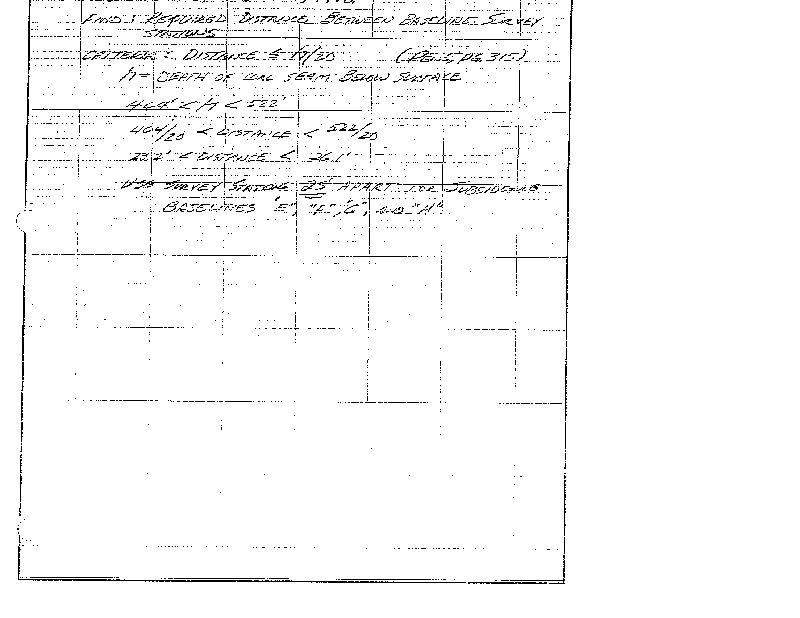 FIND: REQUIRED DISTANCE BETWEEN BASELINE SURVEY
STATIONS
CRITERIA: DISTANCE ≤ h/20 (REGS, PG. 315)
h = DEPTH OF COAL SEAM BELOW SURFACE
464' < h < 522'
464/20 < DISTANCE < 522/20
23.2' < DISTANCE < 26.1'
USE SURVEY STATIONS 25' APART FOR SUBSIDENCE
BASELINES "E", "F", "G", AND "H"